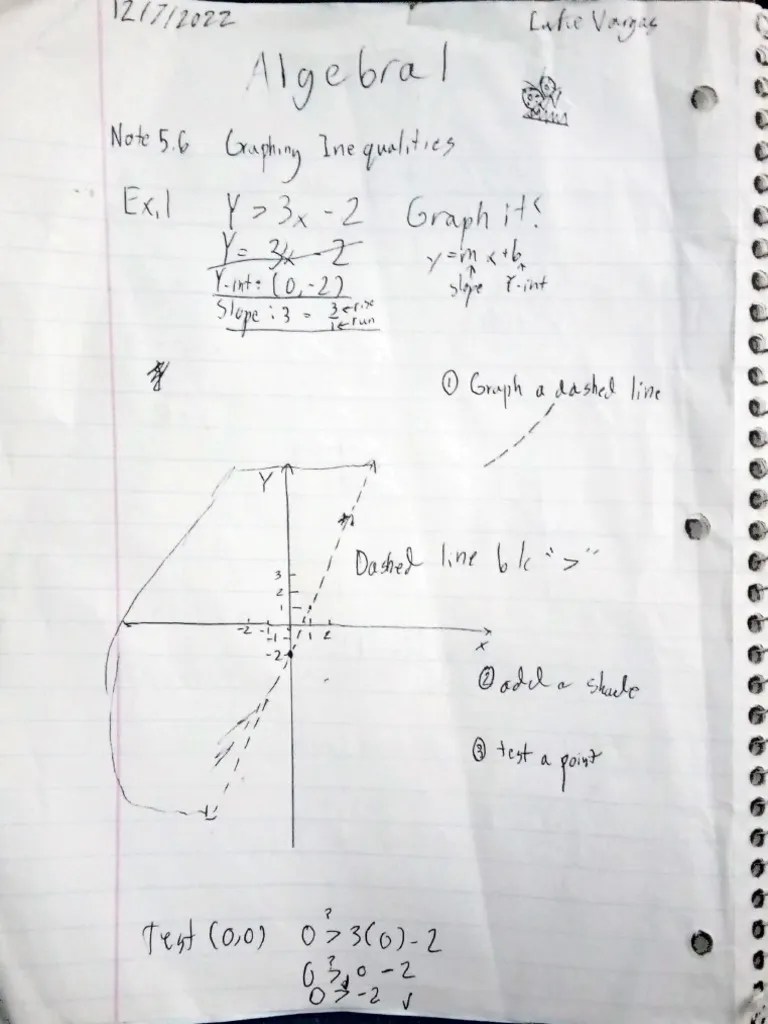 12/7/2022
Luke Vargas
Algebra 1
Note 5.6 Graphing Inequalities
Ex,1 Y > 3x - 2 Graph it!
Y = 3x - 2
y = m x + b
Y-int: (0, -2)
slope Y-int
Slope: 3 = 3 ← rise
1 ← run
① Graph a dashed line
Y
Dashed line b/c ">"
3
2
1
-2 -1 1 2
-1
x
-2
② add a shade
③ test a point
Test (0,0) 0 ?> 3(0) - 2
0 ?> 0 - 2
0 > -2 ✓